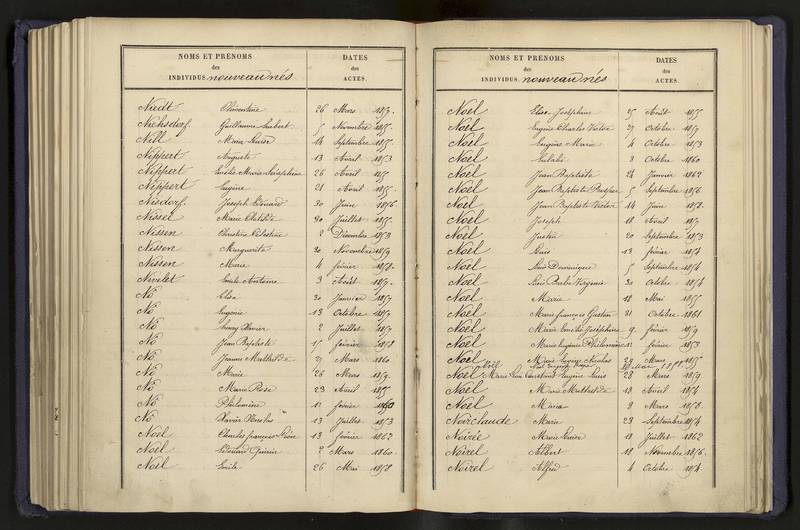 NOMS ET PRÉNOMS
des
INDIVIDUS nouveau nés
DATES
des
ACTES.
Clémentine 26 Mars
Nicksdorf Guillaume Hubert 5 Novembre
Nill Marie Louise 14 Septembre
Nippert Auguste 13 Avril 1853
Nippert Emilie Marie Joséphine 26 Avril
Nippert Eugène 21 Avril
Nisdorf Joseph Edouard 30 Juin 1856
Marie Clotilde 30 Juillet
Nissen Christine Célestine 2 Décembre 1853
Nissen Marguerite 30 Novembre 1859
Nissen Marie 4 février 1858
Nivelet Emile Antoine 3 Août
Nô Elisa 30 Janvier
Nô Eugénie 13 Octobre
Nô Henry Xavier 2 Juillet
Nô Jean Baptiste 15 février 1858
Nô Jeanne Mathilde 27 Mars 1860
Nô Marie 26 Mars
Nô Marie Rose 23 Avril
Nô Philomène 11 février 1860
Nô Xavier Nicolas 13 Juillet 1853
Noël Charles françois 13 février 1862
Noël Edouard Quirin 2 Mars 1860
Noël Emile 26 Mai 1858
NOMS ET PRÉNOMS
des
INDIVIDUS nouveau nés
DATES
des
ACTES.
Noël Elise Joséphine 25 Août 1855
Noël Eugène Charles Victor 27 Octobre 1859
Noël Eugène Marie 4 Octobre 1853
Noël Eulalie 3 Octobre 1860
Noël Jean Baptiste 24 Janvier 1862
Noël Jean Baptiste Prosper 5 Septembre 1856
Noël Jean Baptiste Victor 14 Juin 1858
Noël Joseph 18 Avril
Noël Justin 20 Septembre 1853
Noël Louis 13 février 1854
Noël Louis Dominique 5 Septembre 1854
Noël Louis Barbe Virginie 30 Octobre 1854
Noël Marie 18 Mai 1855
Noël Marie françois Gaston 31 Octobre 1861
Noël Marie Emilie Joséphine 9 février 1859
Noël Marie Eugénie Philomène 11 février 1853
Noël Marie Nicolas 29 Mars 1855
Noël
Noël Marie Eugène Louis 28 Mars 1859
Noël Marie Mathilde 13 Avril 1854
Noël Marie 9 Mars 1858
Noirclaude Marie 23 Septembre 1854
Noirée Marie Louise 18 Juillet 1862
Noirel Albert 18 Novembre 1856
Noirel Alfred 4 Octobre 1854